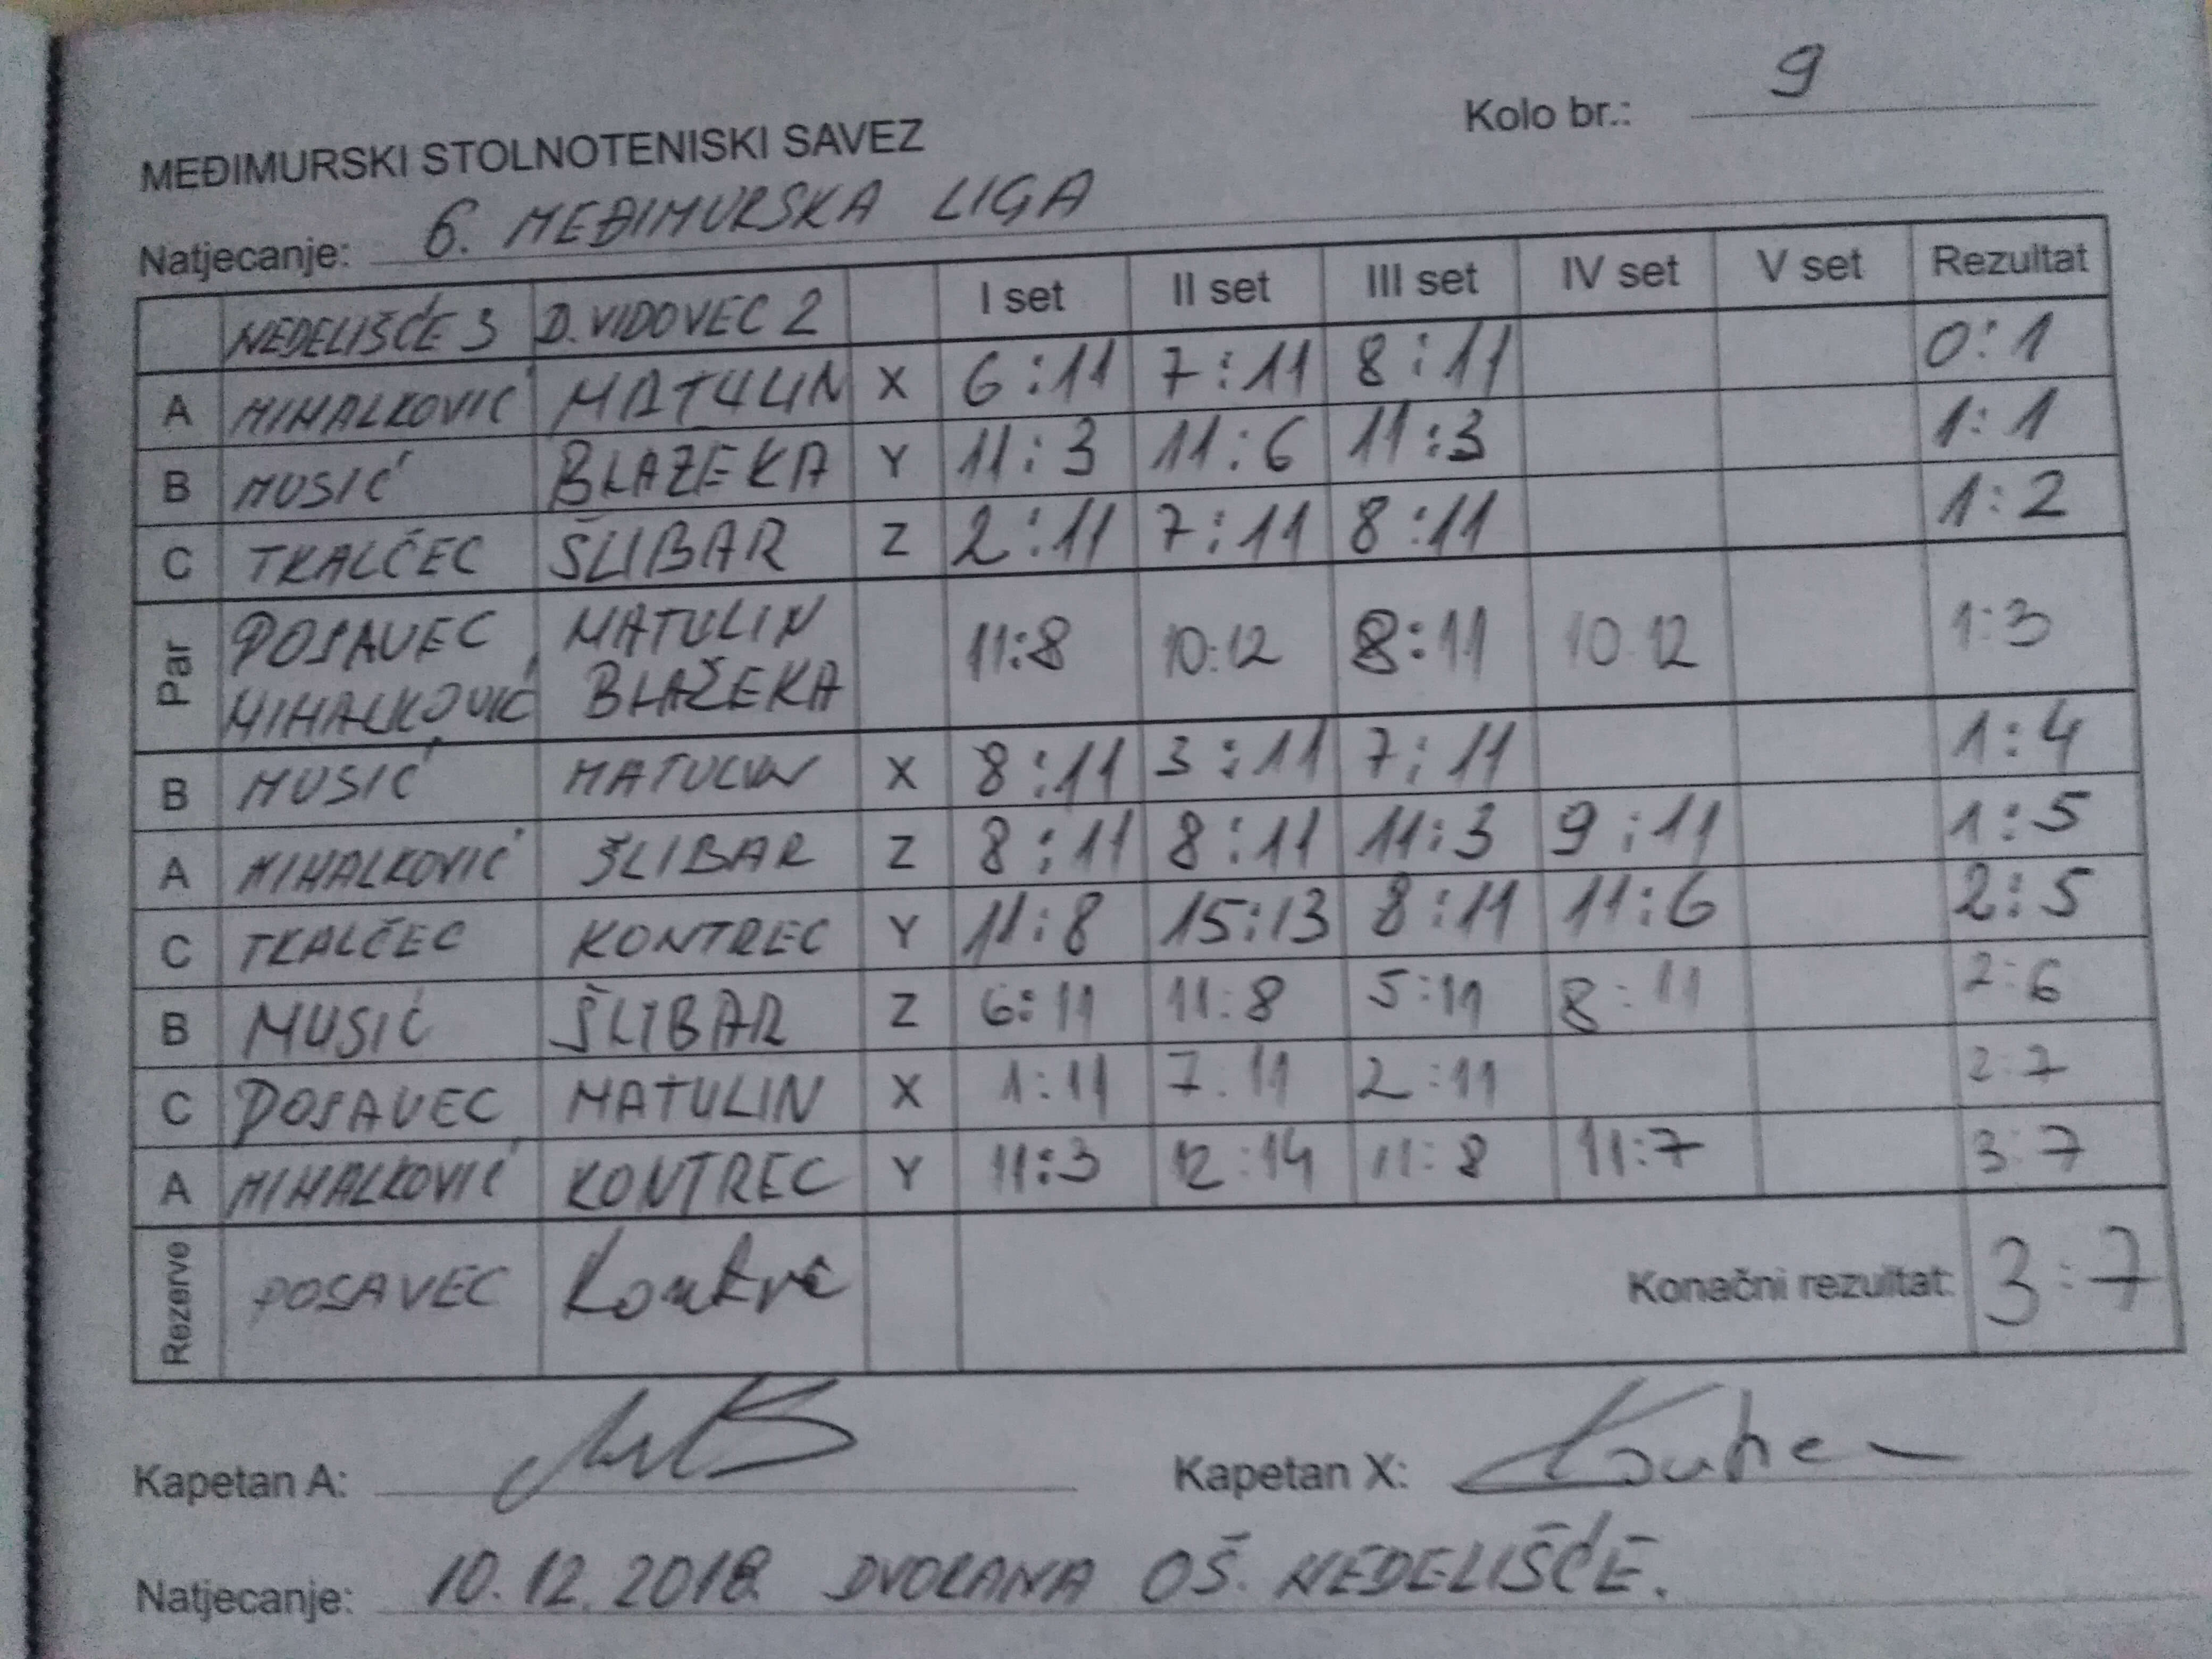 Kolo br.: 9
MEĐIMURSKI STOLNOTENISKI SAVEZ
Natjecanje: 6. MEĐIMURSKA LIGA
NEDELIŠĆE 3 D. VIDOVEC 2 I set II set III set IV set V set Rezultat
A MIHALKOVIĆ MATULIN X 6:11 7:11 8:11 0:1
B MUSIĆ BLAŽEKA Y 11:3 11:6 11:3 1:1
C TKALČEC ŠLIBAR Z 2:11 7:11 8:11 1:2
Par POSAVEC MATULIN 11:8 10:12 8:11 10:12 1:3
MIHALKOVIĆ BLAŽEKA
B MUSIĆ MATULIN X 8:11 3:11 7:11 1:4
A MIHALKOVIĆ ŠLIBAR Z 8:11 8:11 11:3 9:11 1:5
C TKALČEC KONTREC Y 11:8 15:13 8:11 11:6 2:5
B MUSIĆ ŠLIBAR Z 6:11 11:8 5:11 8:11 2:6
C POSAVEC MATULIN X 1:11 7:11 2:11 2:7
A MIHALKOVIĆ KONTREC Y 11:3 12:14 11:8 11:7 3:7
Rezerve POSAVEC Kontrec Konačni rezultat: 3:7
Kapetan A: Kapetan X:
Natjecanje: 10.12.2018. DVORANA OŠ. NEDELIŠĆE.